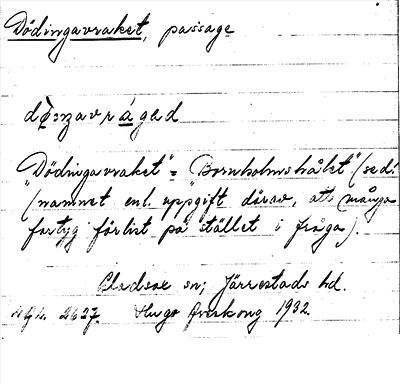 Dödingavraket, passage
"Dödingavraket" = "Bornholmshålet" (se d:o)
(namnet enl. uppgift därav, att många
fartyg förlist på stället i fråga).
sn; Järrestads hd.
2627. Hugo Areskoug 1932.